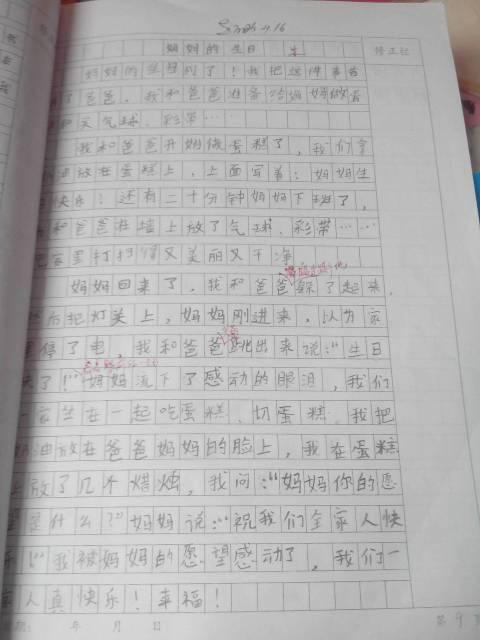 妈妈的生日
修正栏
妈妈的生日到了！我把这件事告
了爸爸，我和爸爸准备给妈妈做蛋
和买气球、彩带…
我和爸爸开始做蛋糕了，我们拿
油放在蛋糕上，上面写着：妈妈生
快乐！还有二十分钟妈妈下班了，
和爸爸在墙上放了气球、彩带……
家里打扫得又美丽又干净
妈妈回来了，我和爸爸躲了起来，
后把灯关上，妈妈刚进来，以为家
停了电，我和爸爸跳出来说：“生日
快了！”妈妈流下了感动的眼泪，我们
一家坐在一起吃蛋糕、切蛋糕，我把
奶油放在爸爸妈妈的脸上，我在蛋糕
上放了几个蜡烛，我问：“妈妈你的愿
望是什么？”妈妈说：“祝我们全家人快
乐！”我被妈妈的愿望感动了，我们一
家人真快乐！幸福！
年 月 日
第 9